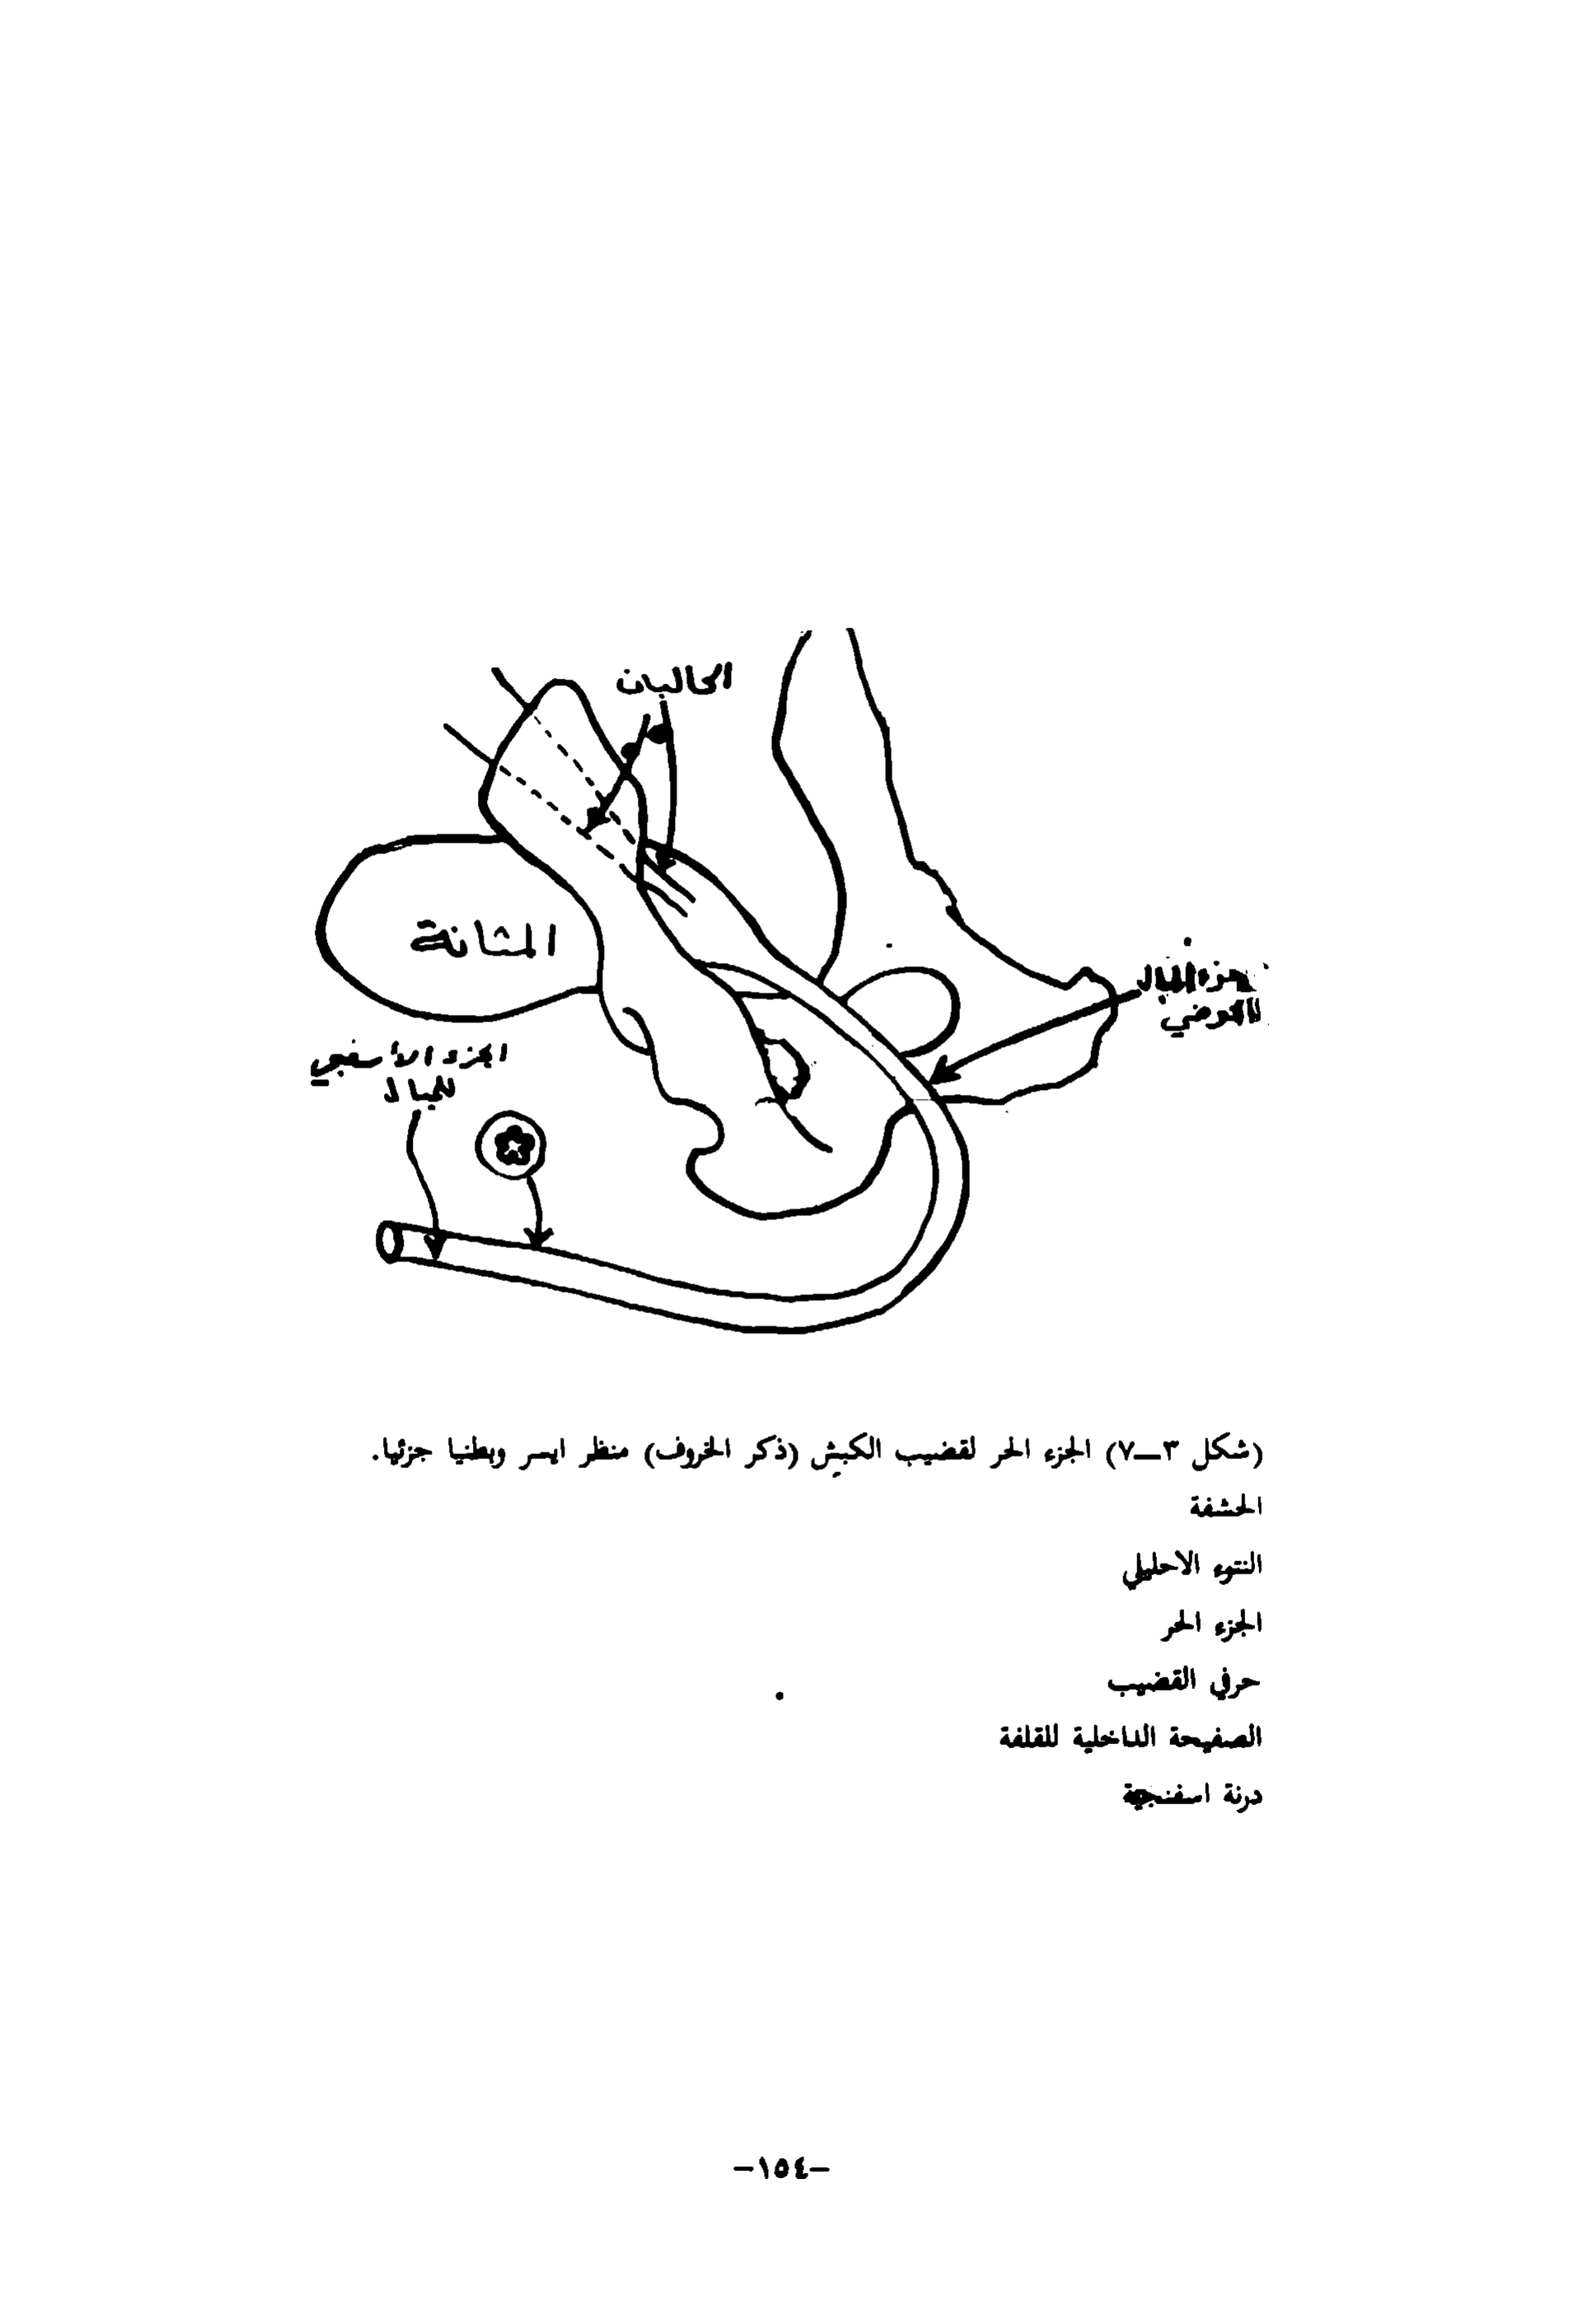 الحالبان
المثانة
جزء المبال
الحوضي
الجزء الأسفنجي
للمبال
(شكل ٣—٧) الجزء الحر لقضيب الكبش (ذكر الخروف) منظر ايسر وبطنيا جزئيا.
الحشفة
النتوء الاحليلي
الجزء الحر
حرفي القضيب
الصفيحة الداخلية للقلفة
درنة اسفنجية
-١٥٤-